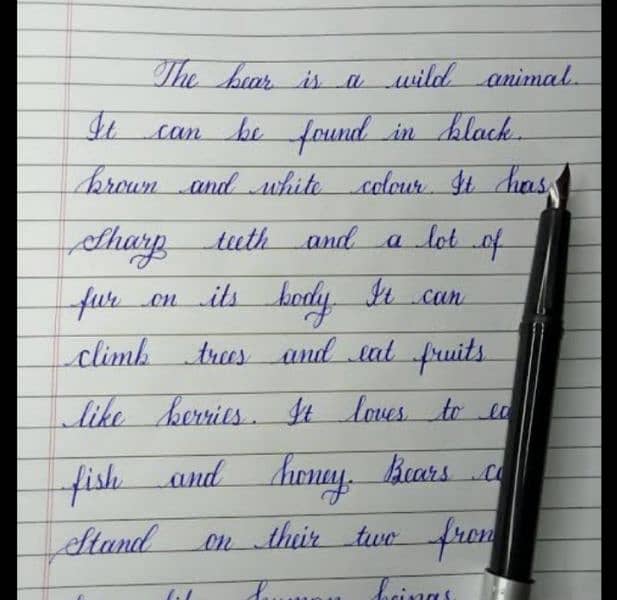 The bear is a wild animal.
It can be found in black.
brown and white colour. It has
sharp teeth and a lot of
fur on its body. It can
climb trees and eat fruits
like berries. It loves to
fish and honey. Bears
Stand on their two
human beings